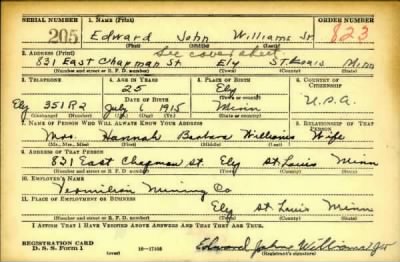 SERIAL NUMBER 1. NAME (Print) ORDER NUMBER
205 Edward John Williams Jr. 823
(First) (Middle) (Last)
2. ADDRESS (Print) See cover sheet.
831 East Chapman St. Ely St. Louis Minn
(Number and street or R. F. D. number) (Town) (County) (State)
3. TELEPHONE 4. AGE IN YEARS 5. PLACE OF BIRTH 6. COUNTRY OF CITIZENSHIP
25 Ely
DATE OF BIRTH
Ely 351R2 July 1, 1915 Minn U.S.A.
(Exchange) (Number) (Mo.) (Day) (Yr.) (State or country)
7. NAME OF PERSON WHO WILL ALWAYS KNOW YOUR ADDRESS 8. RELATIONSHIP OF THAT PERSON
Mrs. Hannah Barbara Williams Wife
(Mr., Mrs., Miss) (First) (Middle) (Last)
9. ADDRESS OF THAT PERSON
831 East Chapman St. Ely St. Louis Minn
(Number and street or R. F. D. number) (Town) (County) (State)
10. EMPLOYER'S NAME
Vermilion Mining Co
11. PLACE OF EMPLOYMENT OR BUSINESS
Ely St. Louis Minn
(Number and street or R. F. D. number) (Town) (County) (State)
I AFFIRM THAT I HAVE VERIFIED ABOVE ANSWERS AND THAT THEY ARE TRUE.
REGISTRATION CARD
D. S. S. FORM 1 (over) Edward John Williams Jr
(Registrant's signature)